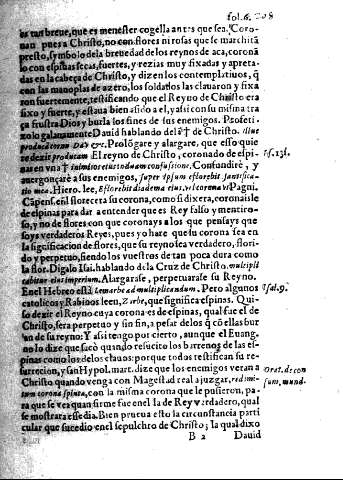 fol. 6.
es tan breue, que es menester cogella antes que sea. Coro-
nan pues a Christo, no con flores ni rosas que se marchitã
presto, symbolo de la breuedad de los reynos de aca, coronã
lo con espinas secas, fuertes, y rezias muy fixadas y apreta-
das en la cabeça de Christo, y dizen los contemplatiuos, q̃
con las manoplas de azero, los soldados las clauaron y fixa
ron fuertemente, testificando que el Reyno de Christo era
fixo y fuerte, y estaua bien asido a el, y assi con su misma tra
ça frustra Dios y burla los fines de sus enemigos. Profeti-
zolo galanamente Dauid hablando del de Christo. Illuc
producam cornu Dauid &c. Prolõgare y alargare, que esso quie
re dezir producam. El reyno de Christo, coronado de espi-
nas en vna † inimicos eius induam confusione. Confundirè, y
auergonçarè a sus enemigos, super ipsum efflorebit sanctifica-
tio mea. Hiero. lee, Efflorebit diadema eius, vel corona vt Pagni.
Capens, enl florecera su corona, como si dixera, coronaisle
de espinas para dar a entender que es Rey falso y mentiro-
so, y no de flores con que coronays a los que pensays que
soys verdaderos Reyes, pues yo hare que su corona sea en
la significacion de flores, que su reyno sea verdadero, flori-
do y perpetuo, siendo los vuestros de tan poca dura como
la flor. Digalo Isai. hablando de la Cruz de Christo. multipli
cabitur eius imperium. Alargarase, perpetuarase su Reyno.
En el Hebreo està Lemarbe ad multiplicandum. Pero algunos
catolicos y Rabinos leen, Zarbe, que significa espinas. Qui-
so dezir el Reyno cuya corona es de espinas, qual fue el de
Christo, sera perpetuo y sin fin, a pesar de los q̃ cõ ellas bur
lan de su reyno: Y assi tengo por cierto, aunque el Euang.
no lo dize que sacò quando resucito los barrenos de las es-
pinas como los de los clauos: porque todos testifican su re-
surrecion, y san Hypol. mart. dize que los enemigos veran a
Christo quando venga con Magestad real a juzgar, redimi-
tum corona spinea, con la misma corona que le pusieron, pa-
ra que se vea quan firme fue en el la de Rey verdadero, qual
se mostrara esse dia. Bien prueua esto la circunstancia parti
cular que sucedio en el sepulchro de Christo; la qual dixo
B 2 Dauid
Psal. 131.
Isai. 9.
Orat. de con
sum. mund.